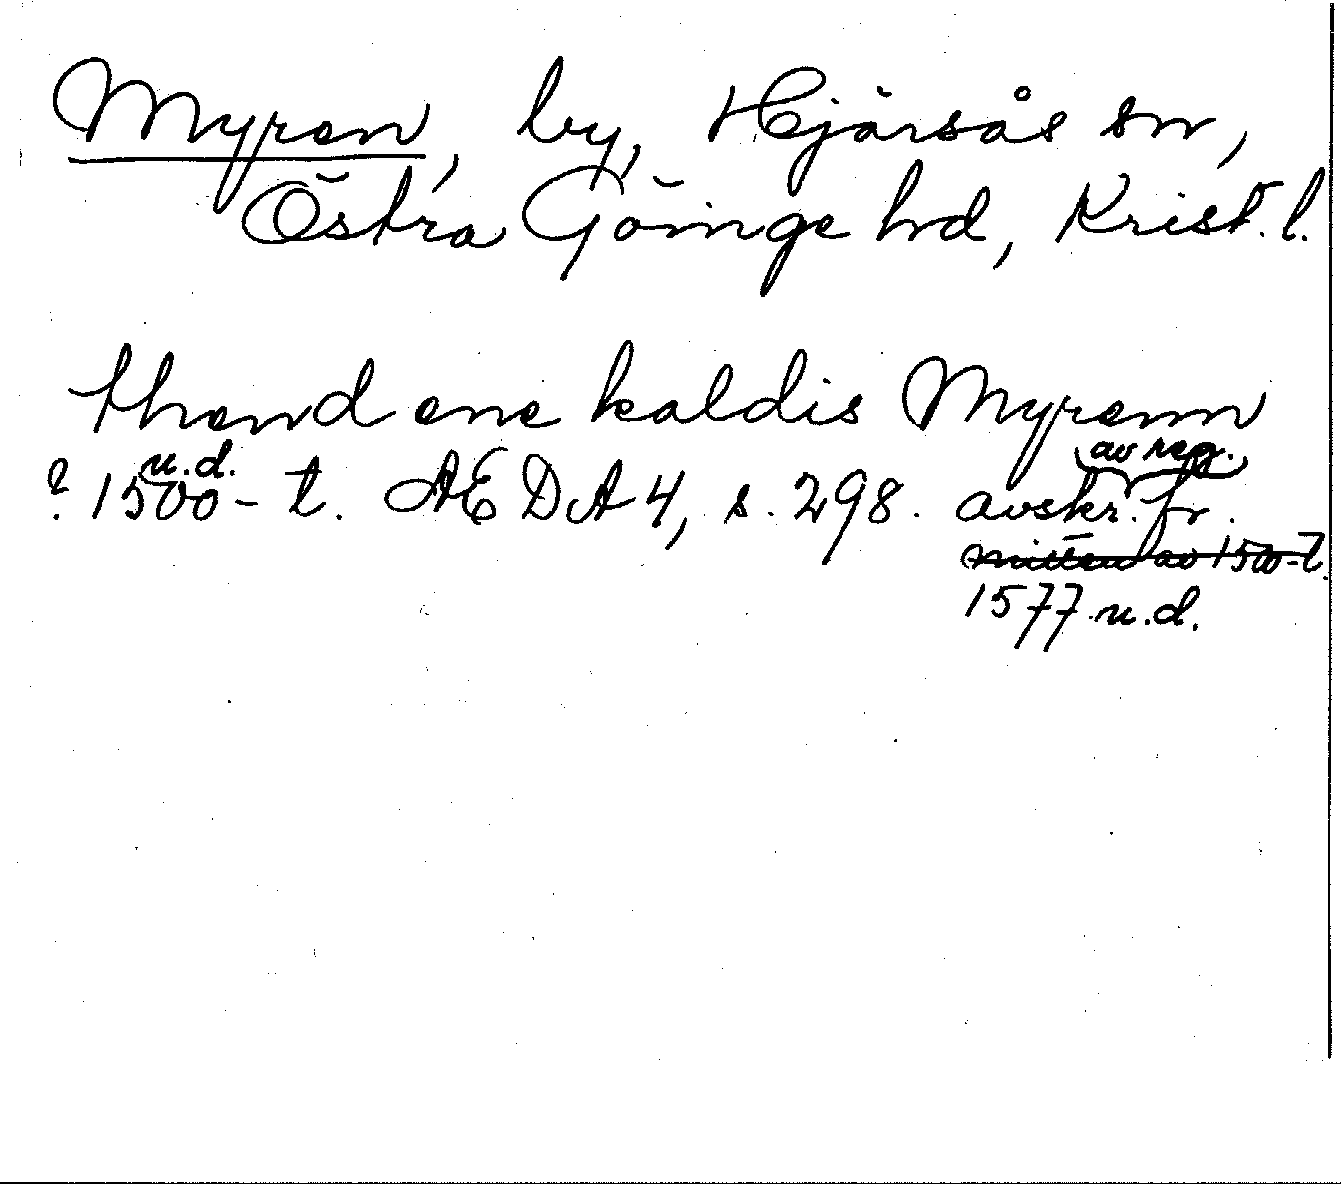 Myren, by, Hjärsås sn,
Östra Göinge hd, Krist. l.
thend ene kaldis Myrenn
u.d. av reg.
? 1500-t. AEDA 4, s. 298. avskr. fr.
mitten av 1500-t.
1577 u.d.